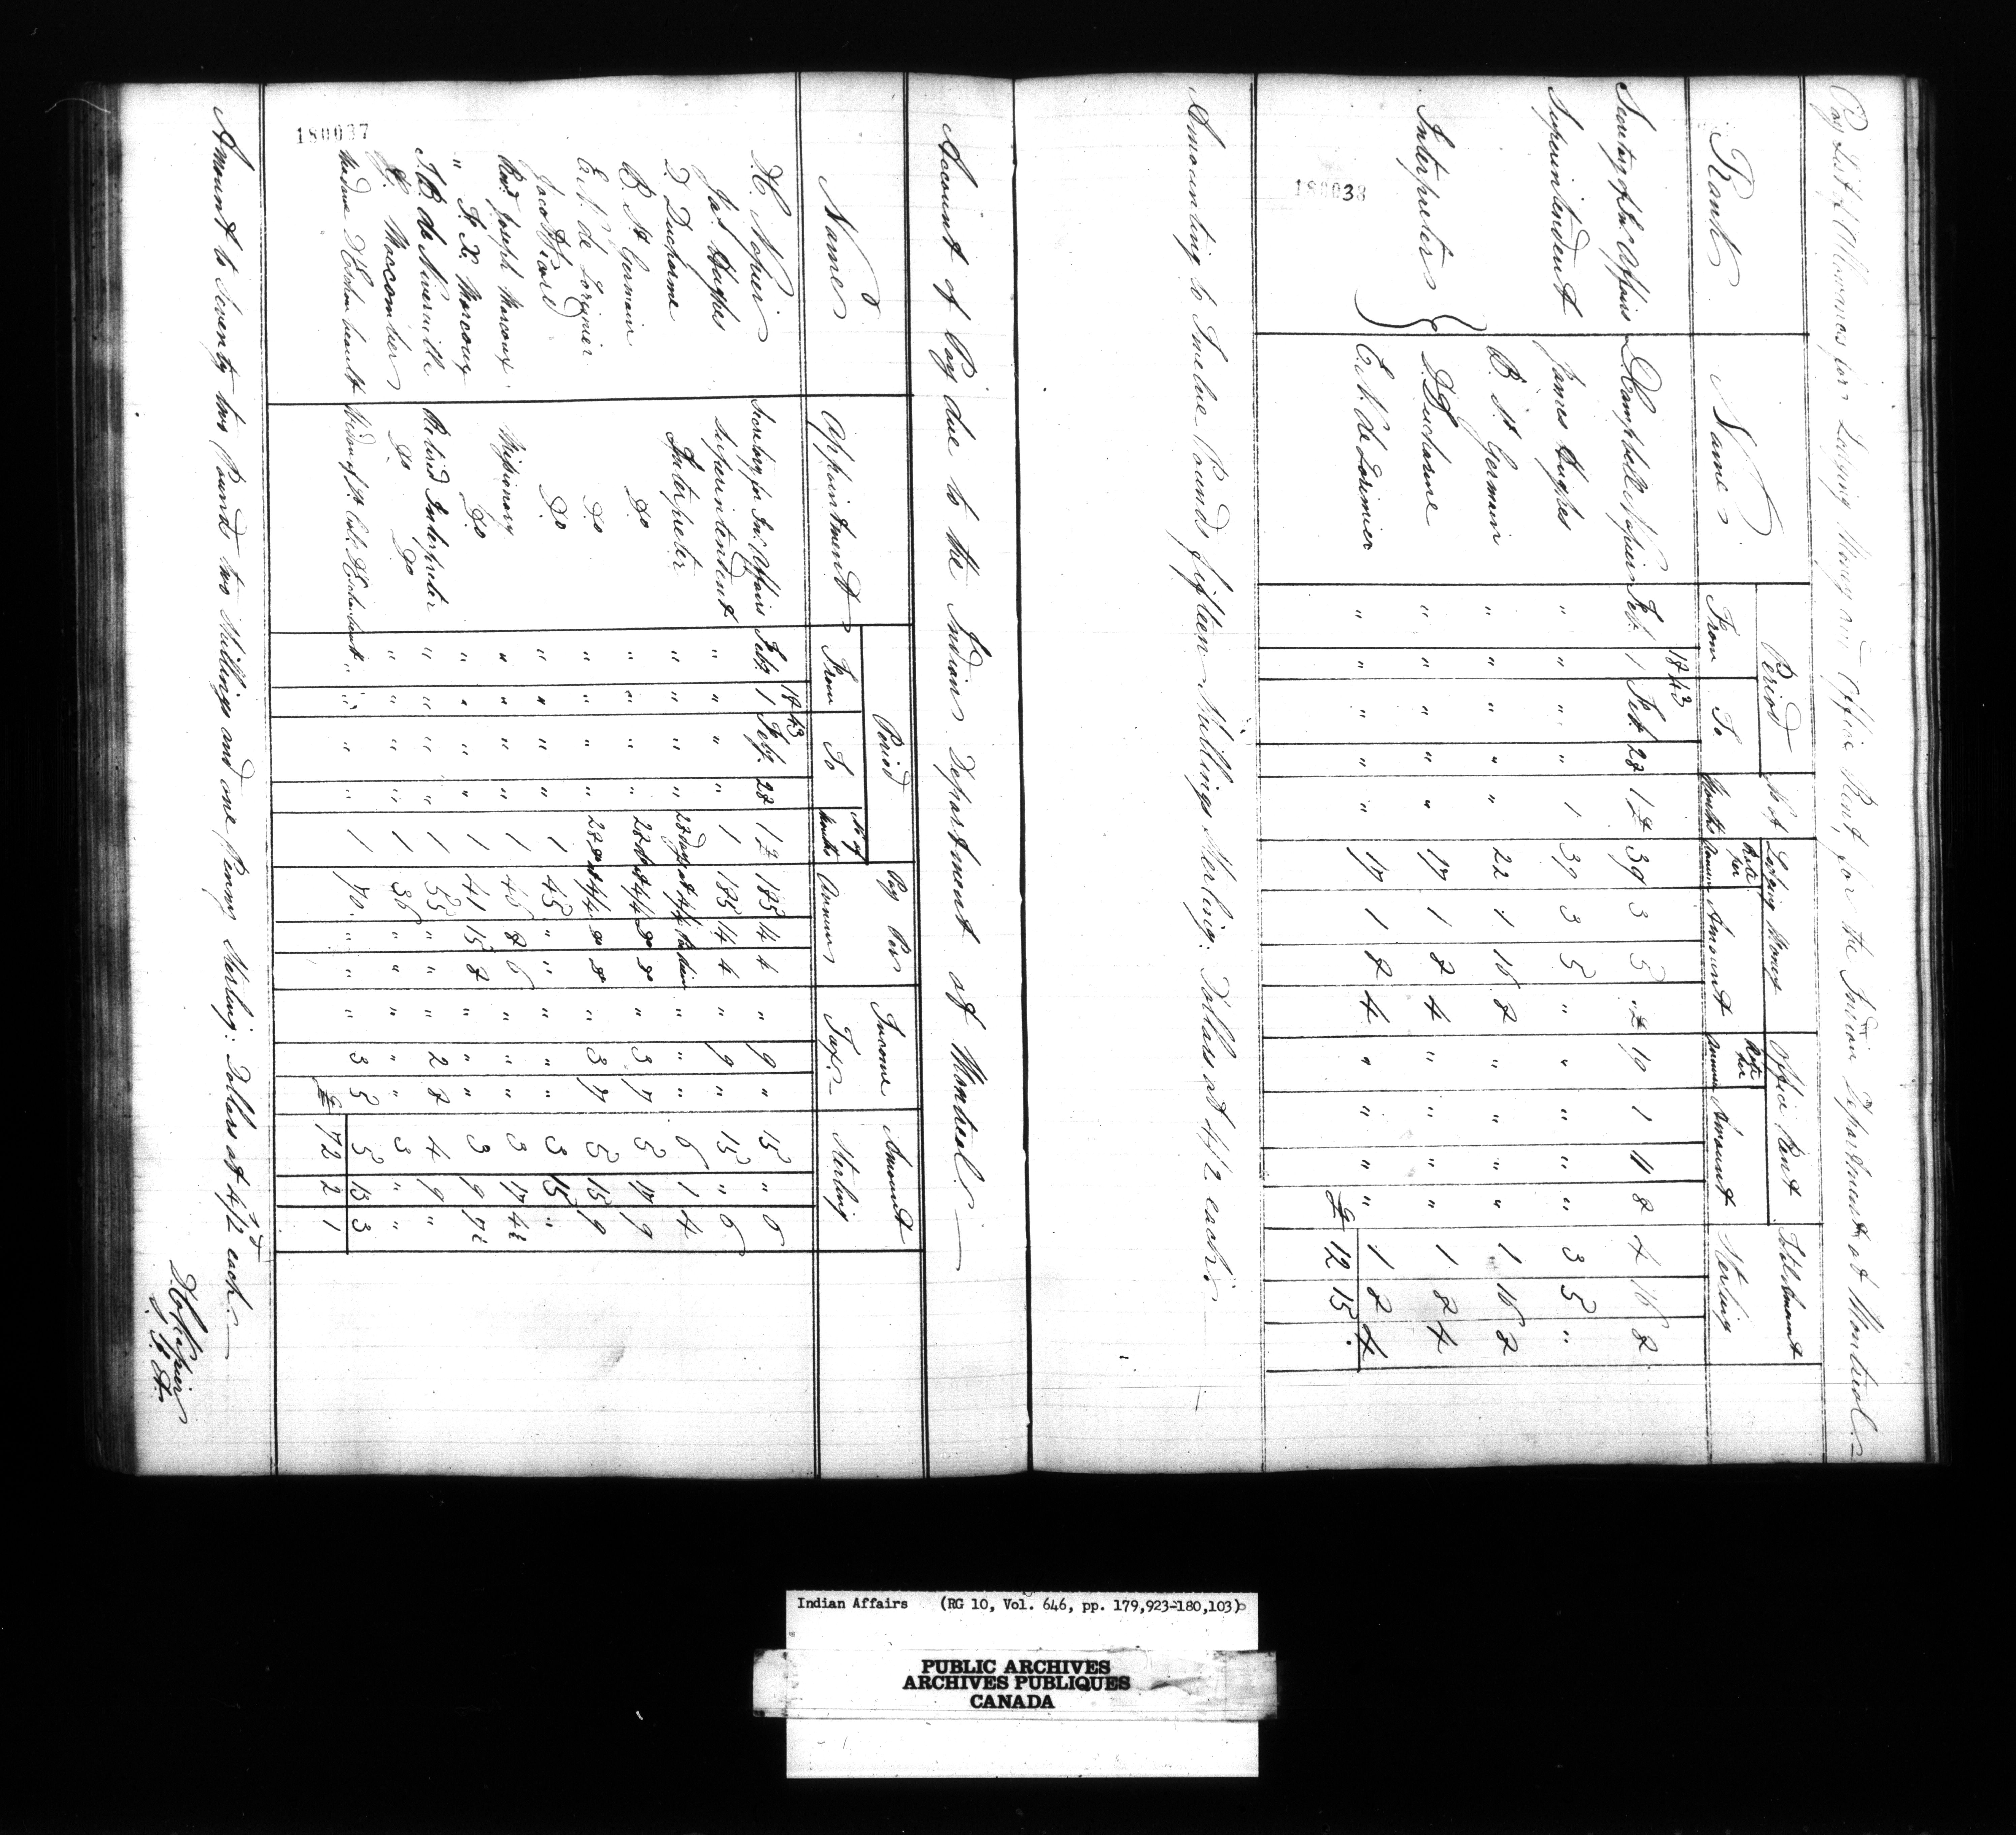 Pay List of Allowances for Lodging Money and Office Rent, for the Indian Department at Montreal.
Rank Name Period No. of Months Lodging Money Office Rent Total Amount Sterling
From To Rate per Annum Amount Rate per Annum Amount
1843
Secretary of In. Affairs D. Campbell Napier Feb. 1 Feb 28 1 £ 39 3 5 " £ 19 1 11 8 4 16 8
Superintendent James Hughes " " " " 1 39 3 5 " " " " " 3 5 "
Interpreters B. St. Germain " " " " " 22 1 16 8 " " " " 1 16 8
D. Ducharme " " " " " 17 1 8 4 " " " " 1 8 4
E. N. de Lorimier " " " " " 17 1 8 4 " " " " 1 8 4
£ 12 15 .
180038
Amounting to Twelve Pounds fifteen Shillings Sterling. Dollars at 4/2 each.
Account of Pay due to the Indian Department at Montreal.
Name Appointment Period Pay Per Annum Income Tax Amount Sterling
From To No. of Months
1843
D. C. Napier Secretary for In. Affairs Feby. 1 Feby. 28 1 £ 185 14 4 " 9 " 15 " 6
Jas. Hughes Superintendent " " " " 1 185 14 4 " 9 " 15 " 6
D. Ducharme Interpreter " " " " 28 days at 4/4 per diem " " " 6 1 4
B. St. Germain Do " " " " 28 do at 4/4 do do " 3 7 5 17 9
E. N. de Lorimier Do " " " " 28 do at 4/4 do do " 3 7 5 15 9
Do " " " " 1 45 " " " " " 3 15 "
Revd. Joseph Marcoux Missionary " " " " 1 46 8 6 " " " 3 17 4½
" F. X. Marcoux Do " " " " 1 41 15 8 " " " 3 9 7½
J. B. de Niverville Retired Interpreter " " " " 1 55 " " " 2 8 4 9 "
Maccomber Do Do " " " " 1 36 " " " " " 3 " "
Madame D'Eschambault Widow of Lt. Col. D'Eschambault " " " " 1 70 " " " 3 5 5 13 3
£ 72 2 1
180037
Amount to Seventy two Pounds two Shillings and one Penny Sterling. Dollars at 4/2 each.
D. C. Napier
S. I. A.
Indian Affairs (RG 10, Vol. 646, pp. 179,923-180,103)
PUBLIC ARCHIVES
ARCHIVES PUBLIQUES
CANADA